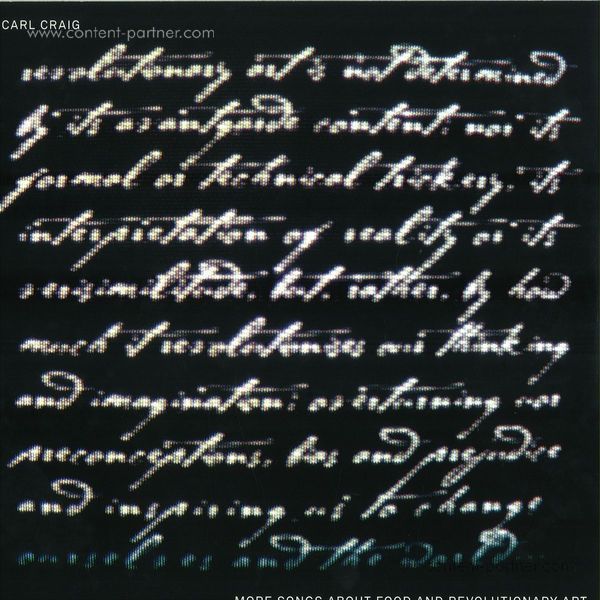 CARL CRAIG
www.content-partner.com
revolutionary art is not determined
by its avantgarde content; nor its
formal or technical trickery, its
interpretation of reality or its
verisimilitude, but, rather, by how
much it revolutionises our thinking
and imagination; overturning our
preconceptions, bias and prejudice
and inspiring us to change
ourselves and the world
content-partner.com
MORE SONGS ABOUT FOOD AND REVOLUTIONARY ART